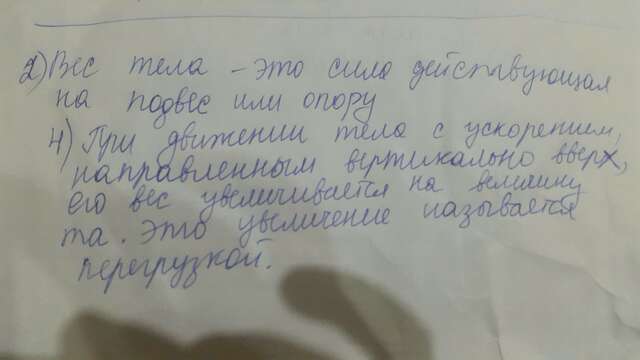 2) Вес тела - это сила действующая
на подвес или опору
4) При движении тела с ускорением,
направленным вертикально вверх,
его вес увеличивается на величину
та. Это увеличение называется
перегрузкой.